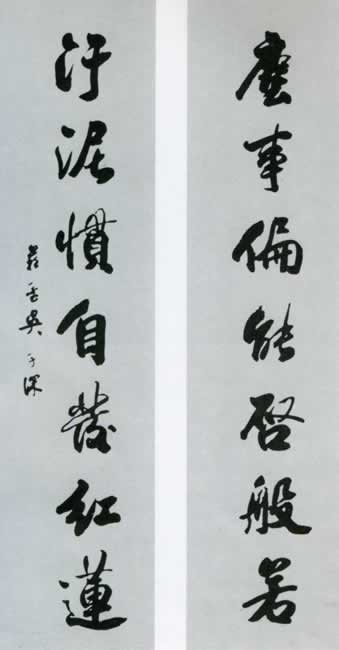 塵事偏能啓般若
汙泥慣自發紅蓮
吳子深